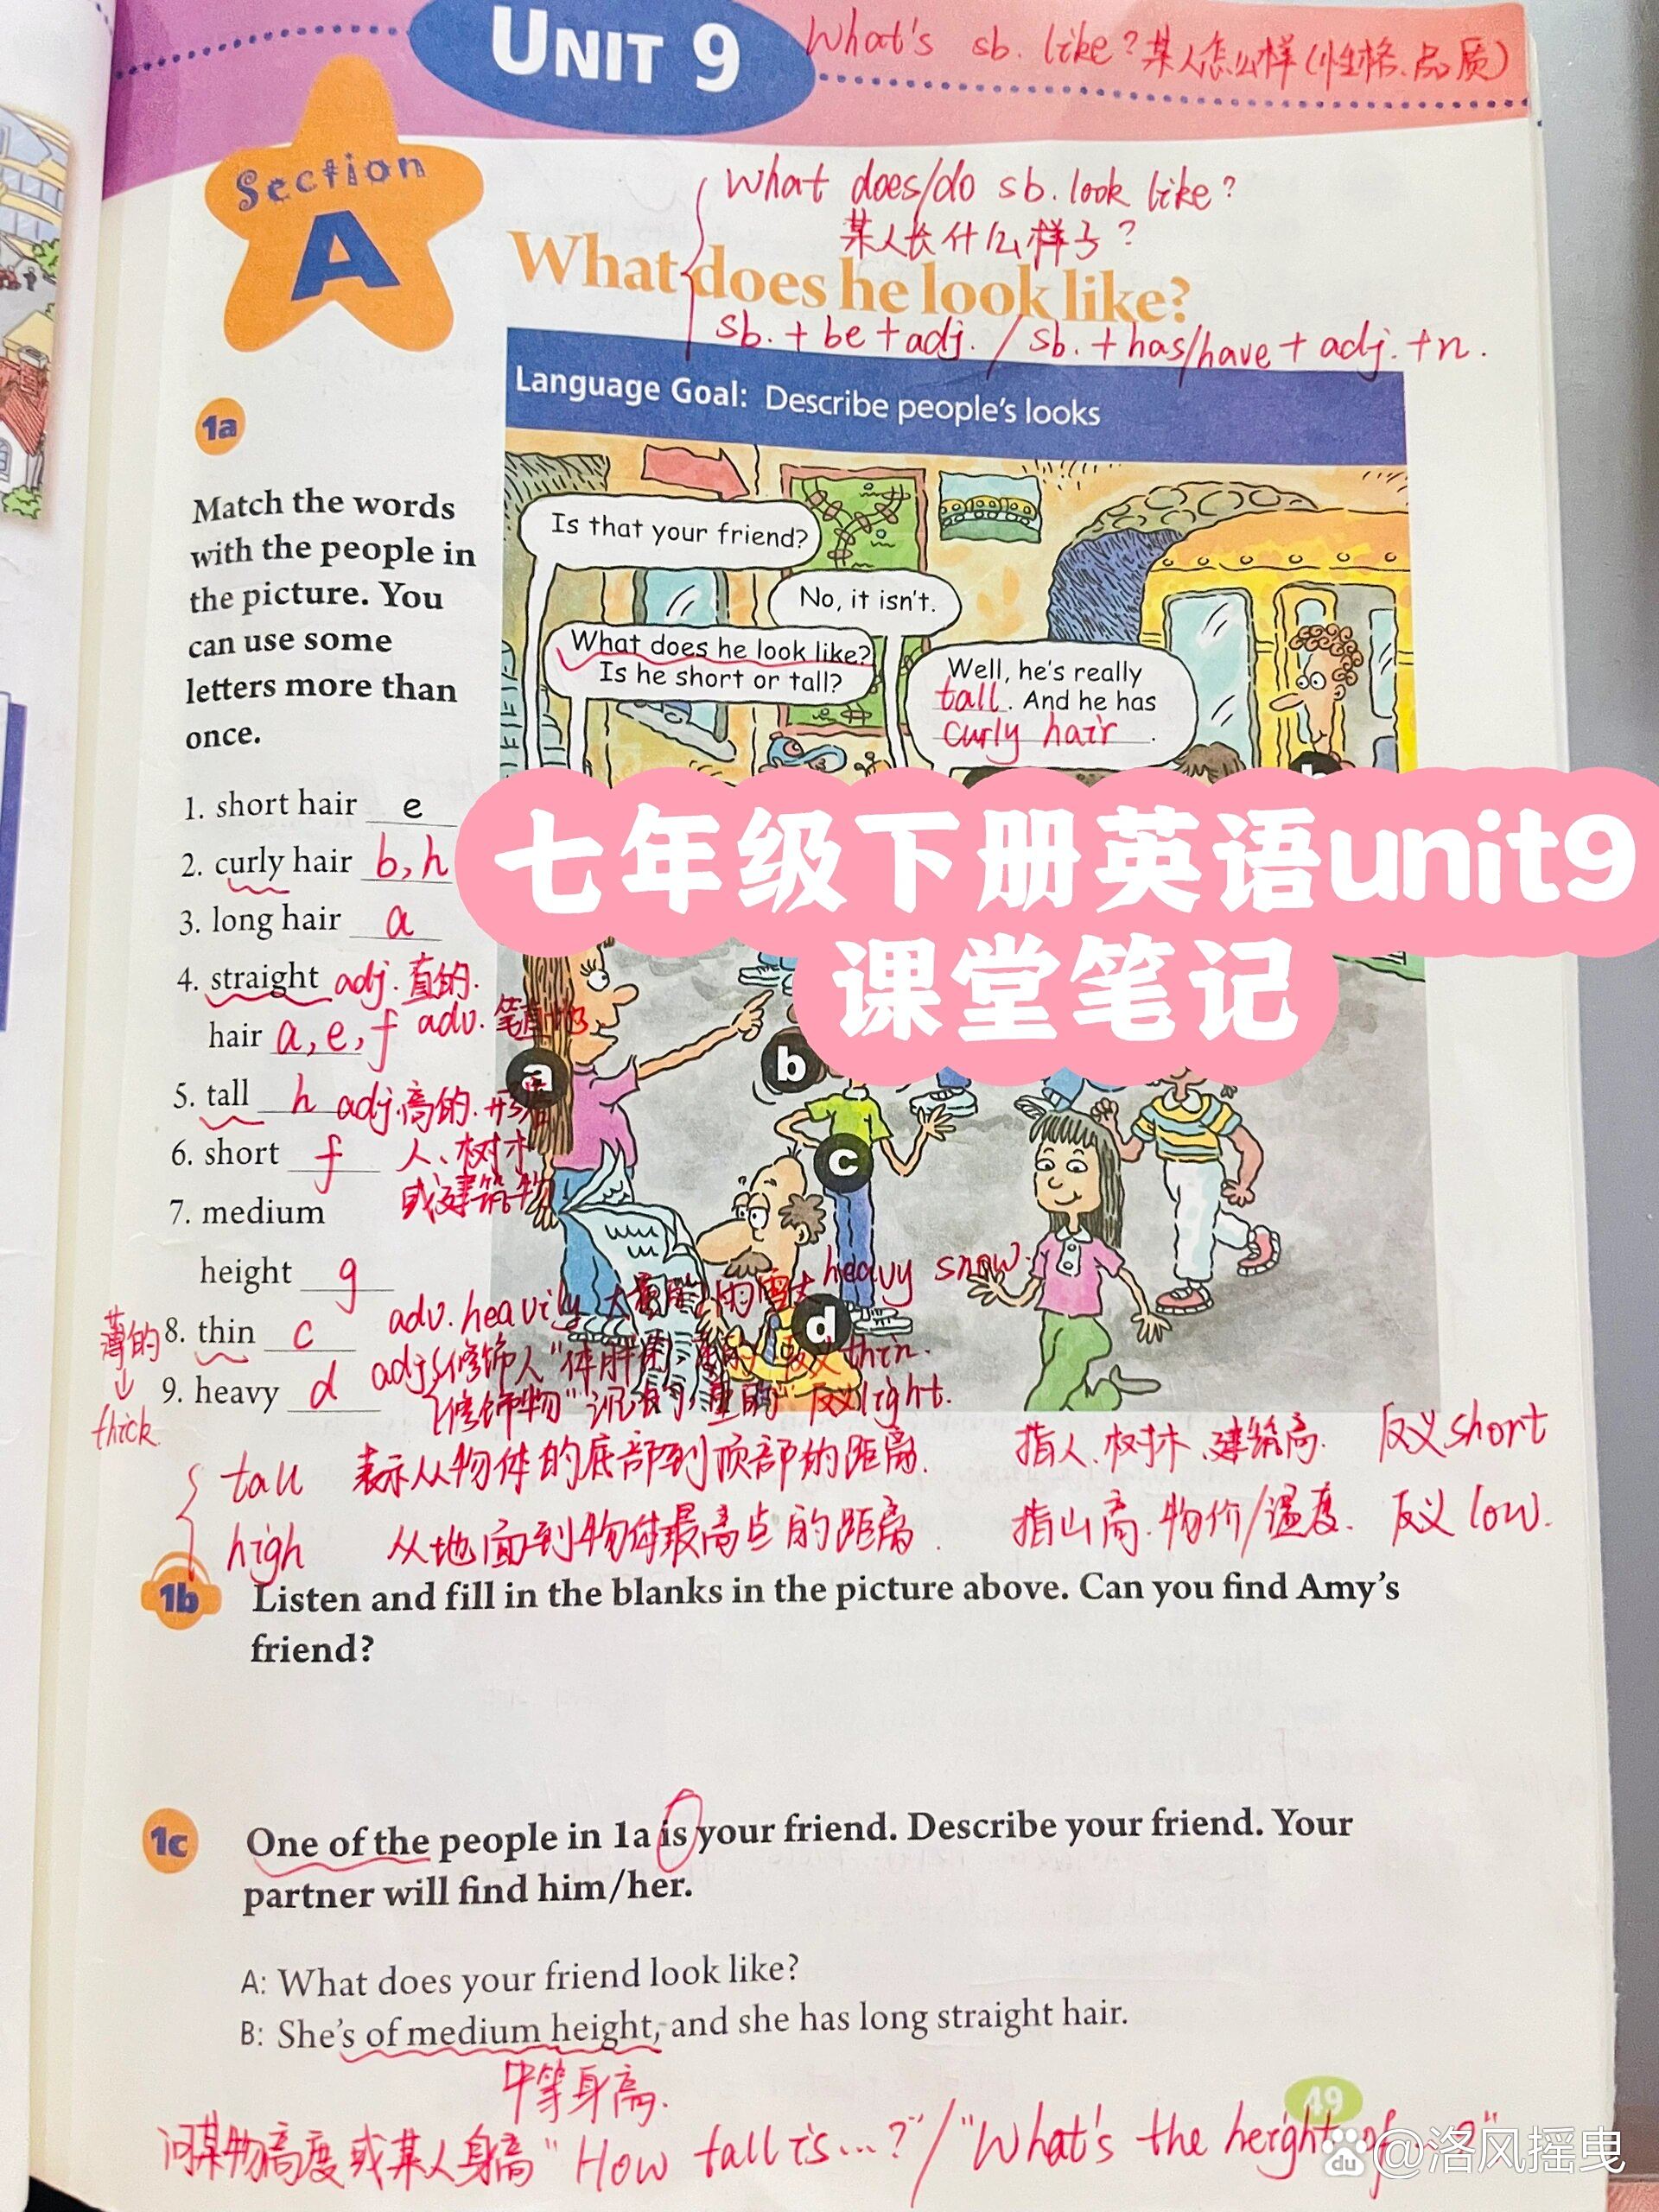 UNIT 9
What's sb. like? 某人怎么样(性格、品质)
Section
A
What does/do sb. look like?
某人长什么样子?
What does he look like?
sb. + be + adj. / sb. + has/have + adj. + n.
Language Goal: Describe people's looks
1a
Match the words
with the people in
the picture. You
can use some
letters more than
once.
Is that your friend?
No, it isn't.
What does he look like?
Is he short or tall?
Well, he's really
tall. And he has
curly hair.
七年级下册英语unit9
课堂笔记
1. short hair e
2. curly hair b, h
3. long hair a
4. straight adj. 直的.
hair a, e, f adv. 笔直地
5. tall h adj. 高的.
6. short f 人、树木
7. medium 或建筑物
height g
8. thin c
9. heavy d
薄的
↓
thick
a
b
c
d
adv. heavily
heavy snow.
adj 修饰人"体胖的, thin.
修饰物" 重的" 反义light.
tall 表示从物体的底部到顶部的距离. 指人、树林、建筑高. 反义short
high 从地面到物体最高点的距离. 指山高.物价/温度. 反义 low.
1b Listen and fill in the blanks in the picture above. Can you find Amy's
friend?
1c One of the people in 1a is your friend. Describe your friend. Your
partner will find him/her.
A: What does your friend look like?
B: She's of medium height, and she has long straight hair.
中等身高.
49
问某物高度或某人身高 "How tall is...?"/"What's the height of ...?"
du @洛风摇曳